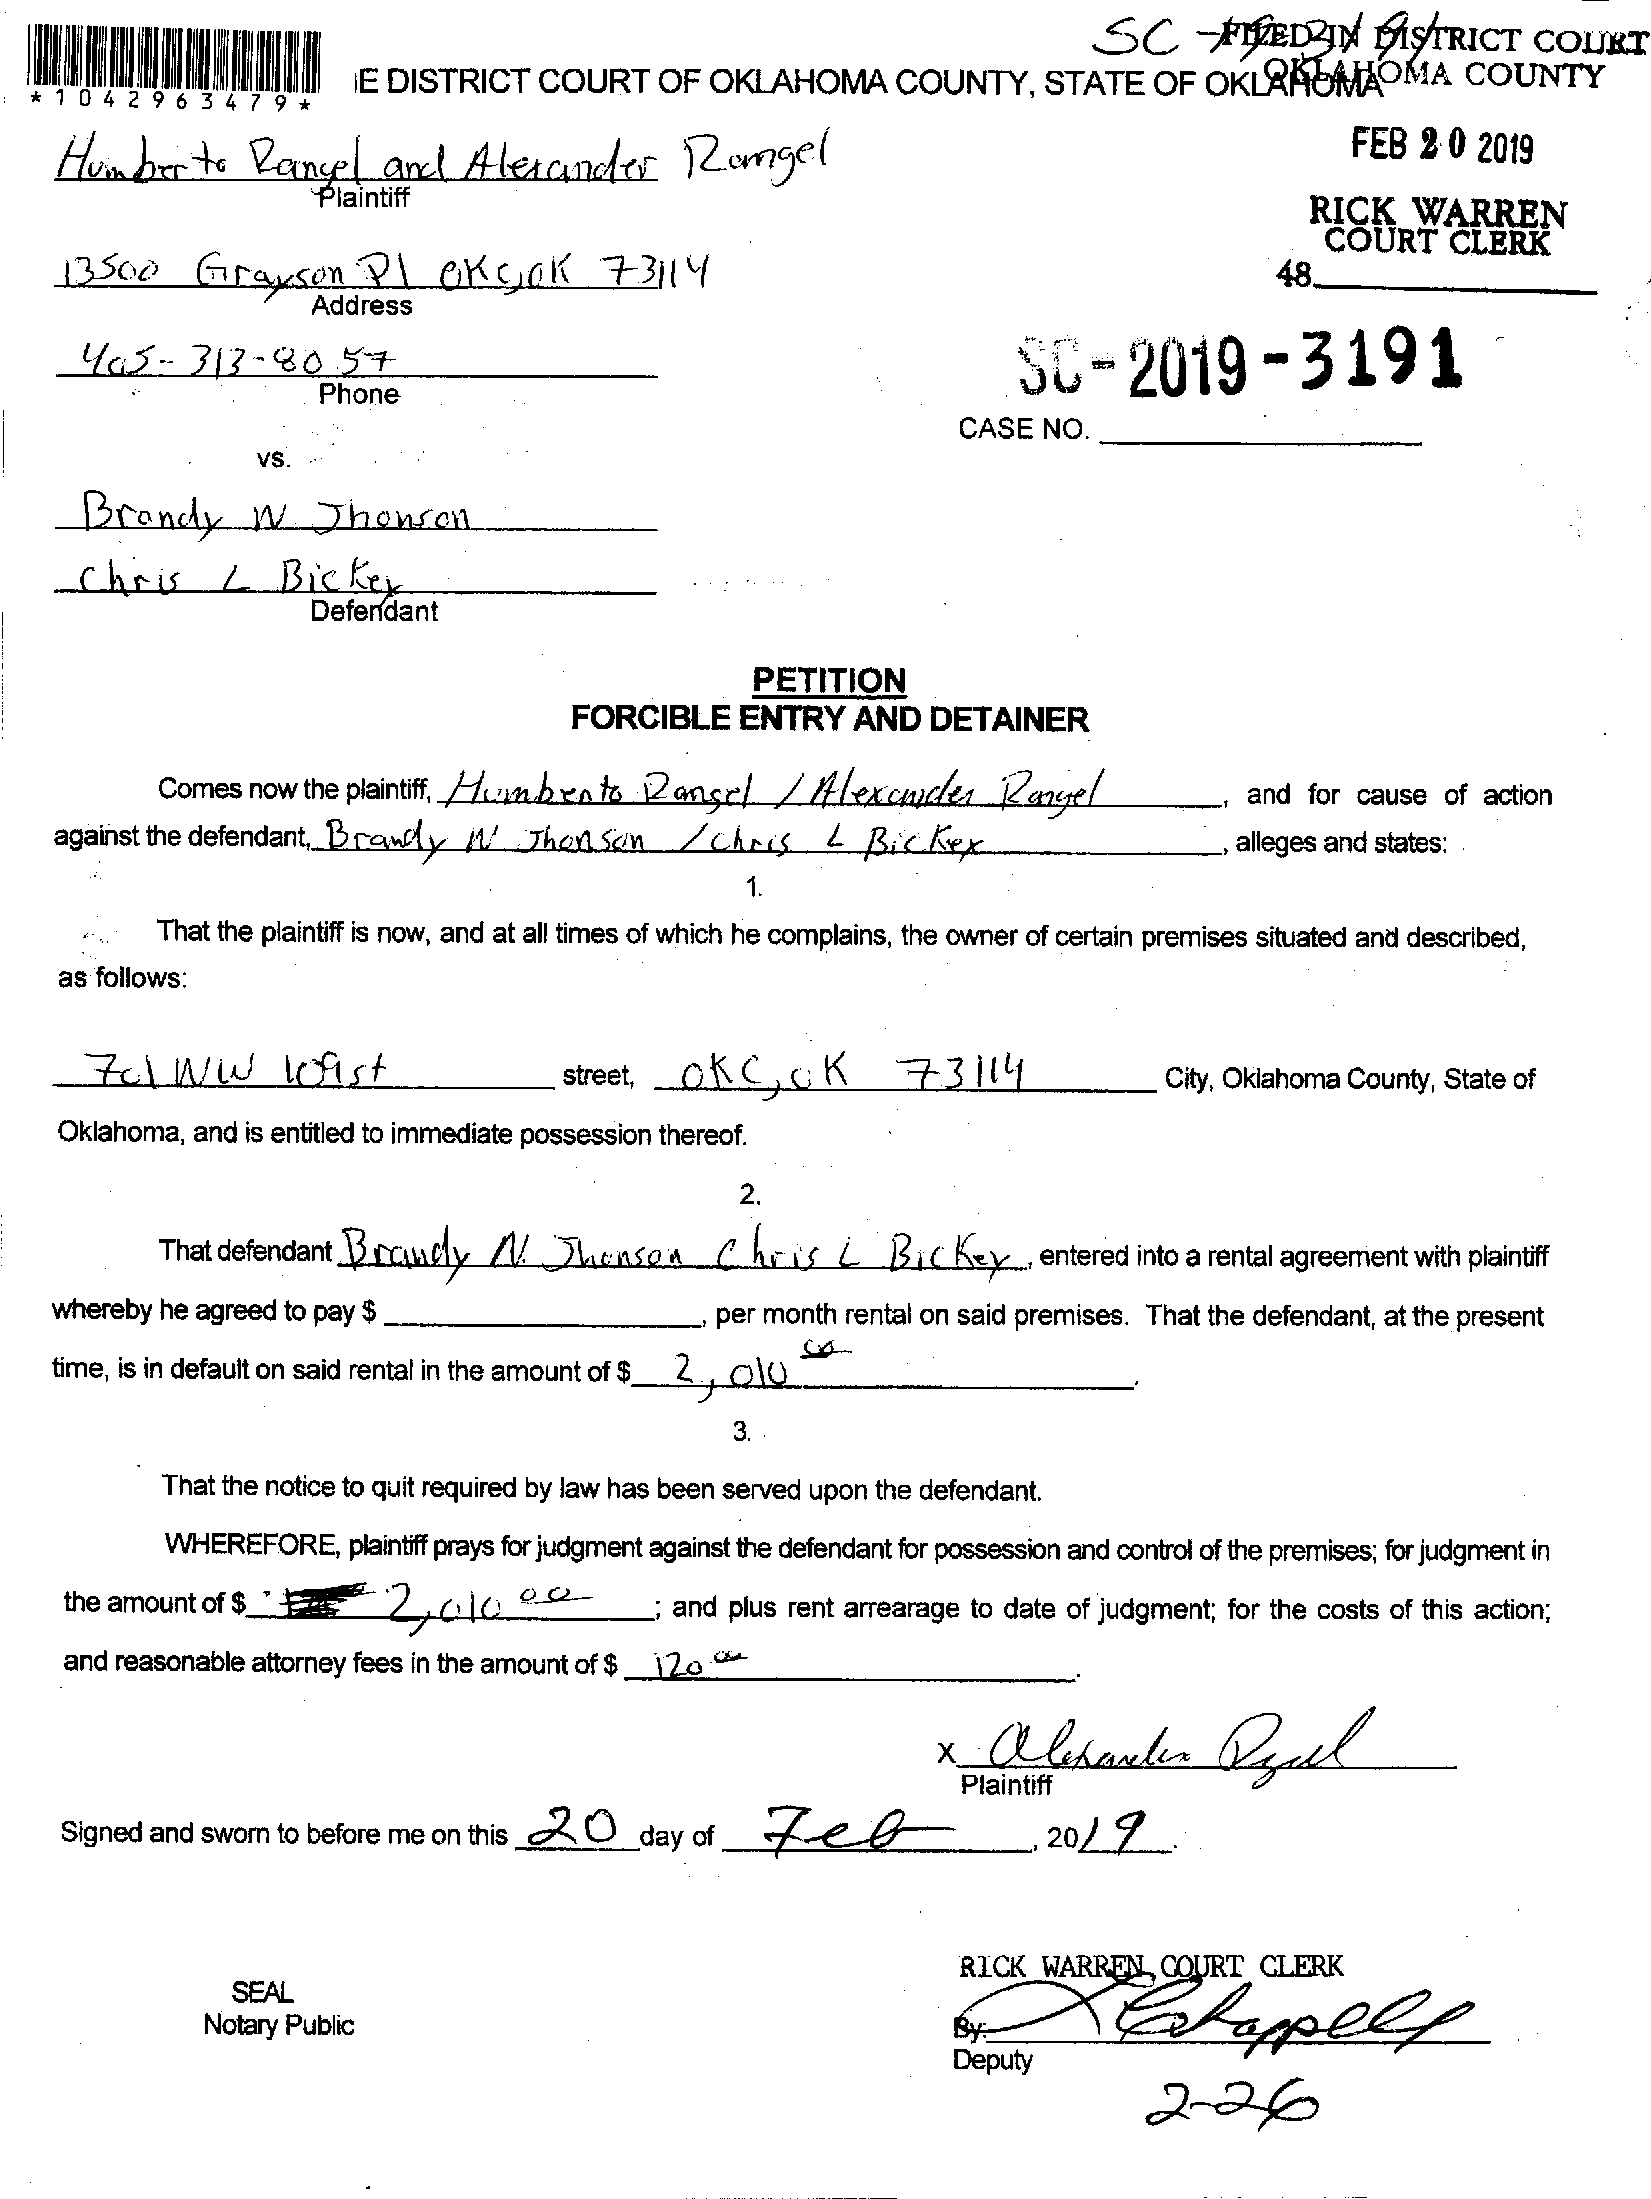 SC -19-3191
FILED IN DISTRICT COURT
OKLAHOMA COUNTY
*1042963479*
IE DISTRICT COURT OF OKLAHOMA COUNTY, STATE OF OKLAHOMA
FEB 20 2019
RICK WARREN
COURT CLERK
48
Humberto Rangel and Alexander Rangel
Plaintiff
13500 Grayson Pl OKC,OK 73114
Address
405-313-8057
Phone
SC-2019-3191
CASE NO.
vs.
Brandy N Jhonson
Chris L Bickey
Defendant
PETITION
FORCIBLE ENTRY AND DETAINER
Comes now the plaintiff, Humberto Rangel / Alexander Rangel, and for cause of action
against the defendant, Brandy N Jhonson / Chris L Bickey, alleges and states:
1.
That the plaintiff is now, and at all times of which he complains, the owner of certain premises situated and described,
as follows:
701 NW street, OKC, OK 73114 City, Oklahoma County, State of
Oklahoma, and is entitled to immediate possession thereof.
2.
That defendant Brandy N. Jhonson Chris L Bickey, entered into a rental agreement with plaintiff
whereby he agreed to pay $ , per month rental on said premises. That the defendant, at the present
time, is in default on said rental in the amount of $ 2,010 00.
3.
That the notice to quit required by law has been served upon the defendant.
WHEREFORE, plaintiff prays for judgment against the defendant for possession and control of the premises; for judgment in
the amount of $ 2,010 00; and plus rent arrearage to date of judgment; for the costs of this action;
and reasonable attorney fees in the amount of $ 120 00.
x Alexander Rangel
Plaintiff
Signed and sworn to before me on this 20 day of Feb, 2019.
RICK WARREN, COURT CLERK
SEAL
Notary Public
By: Chappell
Deputy
2-26